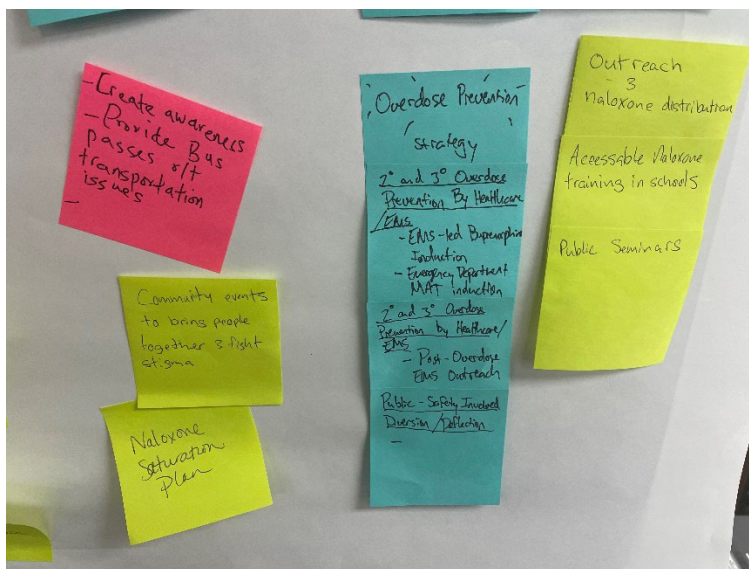 -Create awareness
-Provide Bus
passes r/t
transportation
issues
-
Community events
to bring people
together & fight
stigma
Naloxone
Saturation
Plan
Overdose Prevention
Strategy
2° and 3° Overdose
Prevention By Healthcare
/EMS
- EMS-led Buprenorphine
Induction
- Emergency Department
MAT induction
2° and 3° Overdose
Prevention by Healthcare/
EMS
- Post-Overdose
EMS Outreach
Public-Safety Involved
Diversion/Deflection
-
Outreach
&
naloxone distribution
Accessable Naloxone
training in schools
Public Seminars